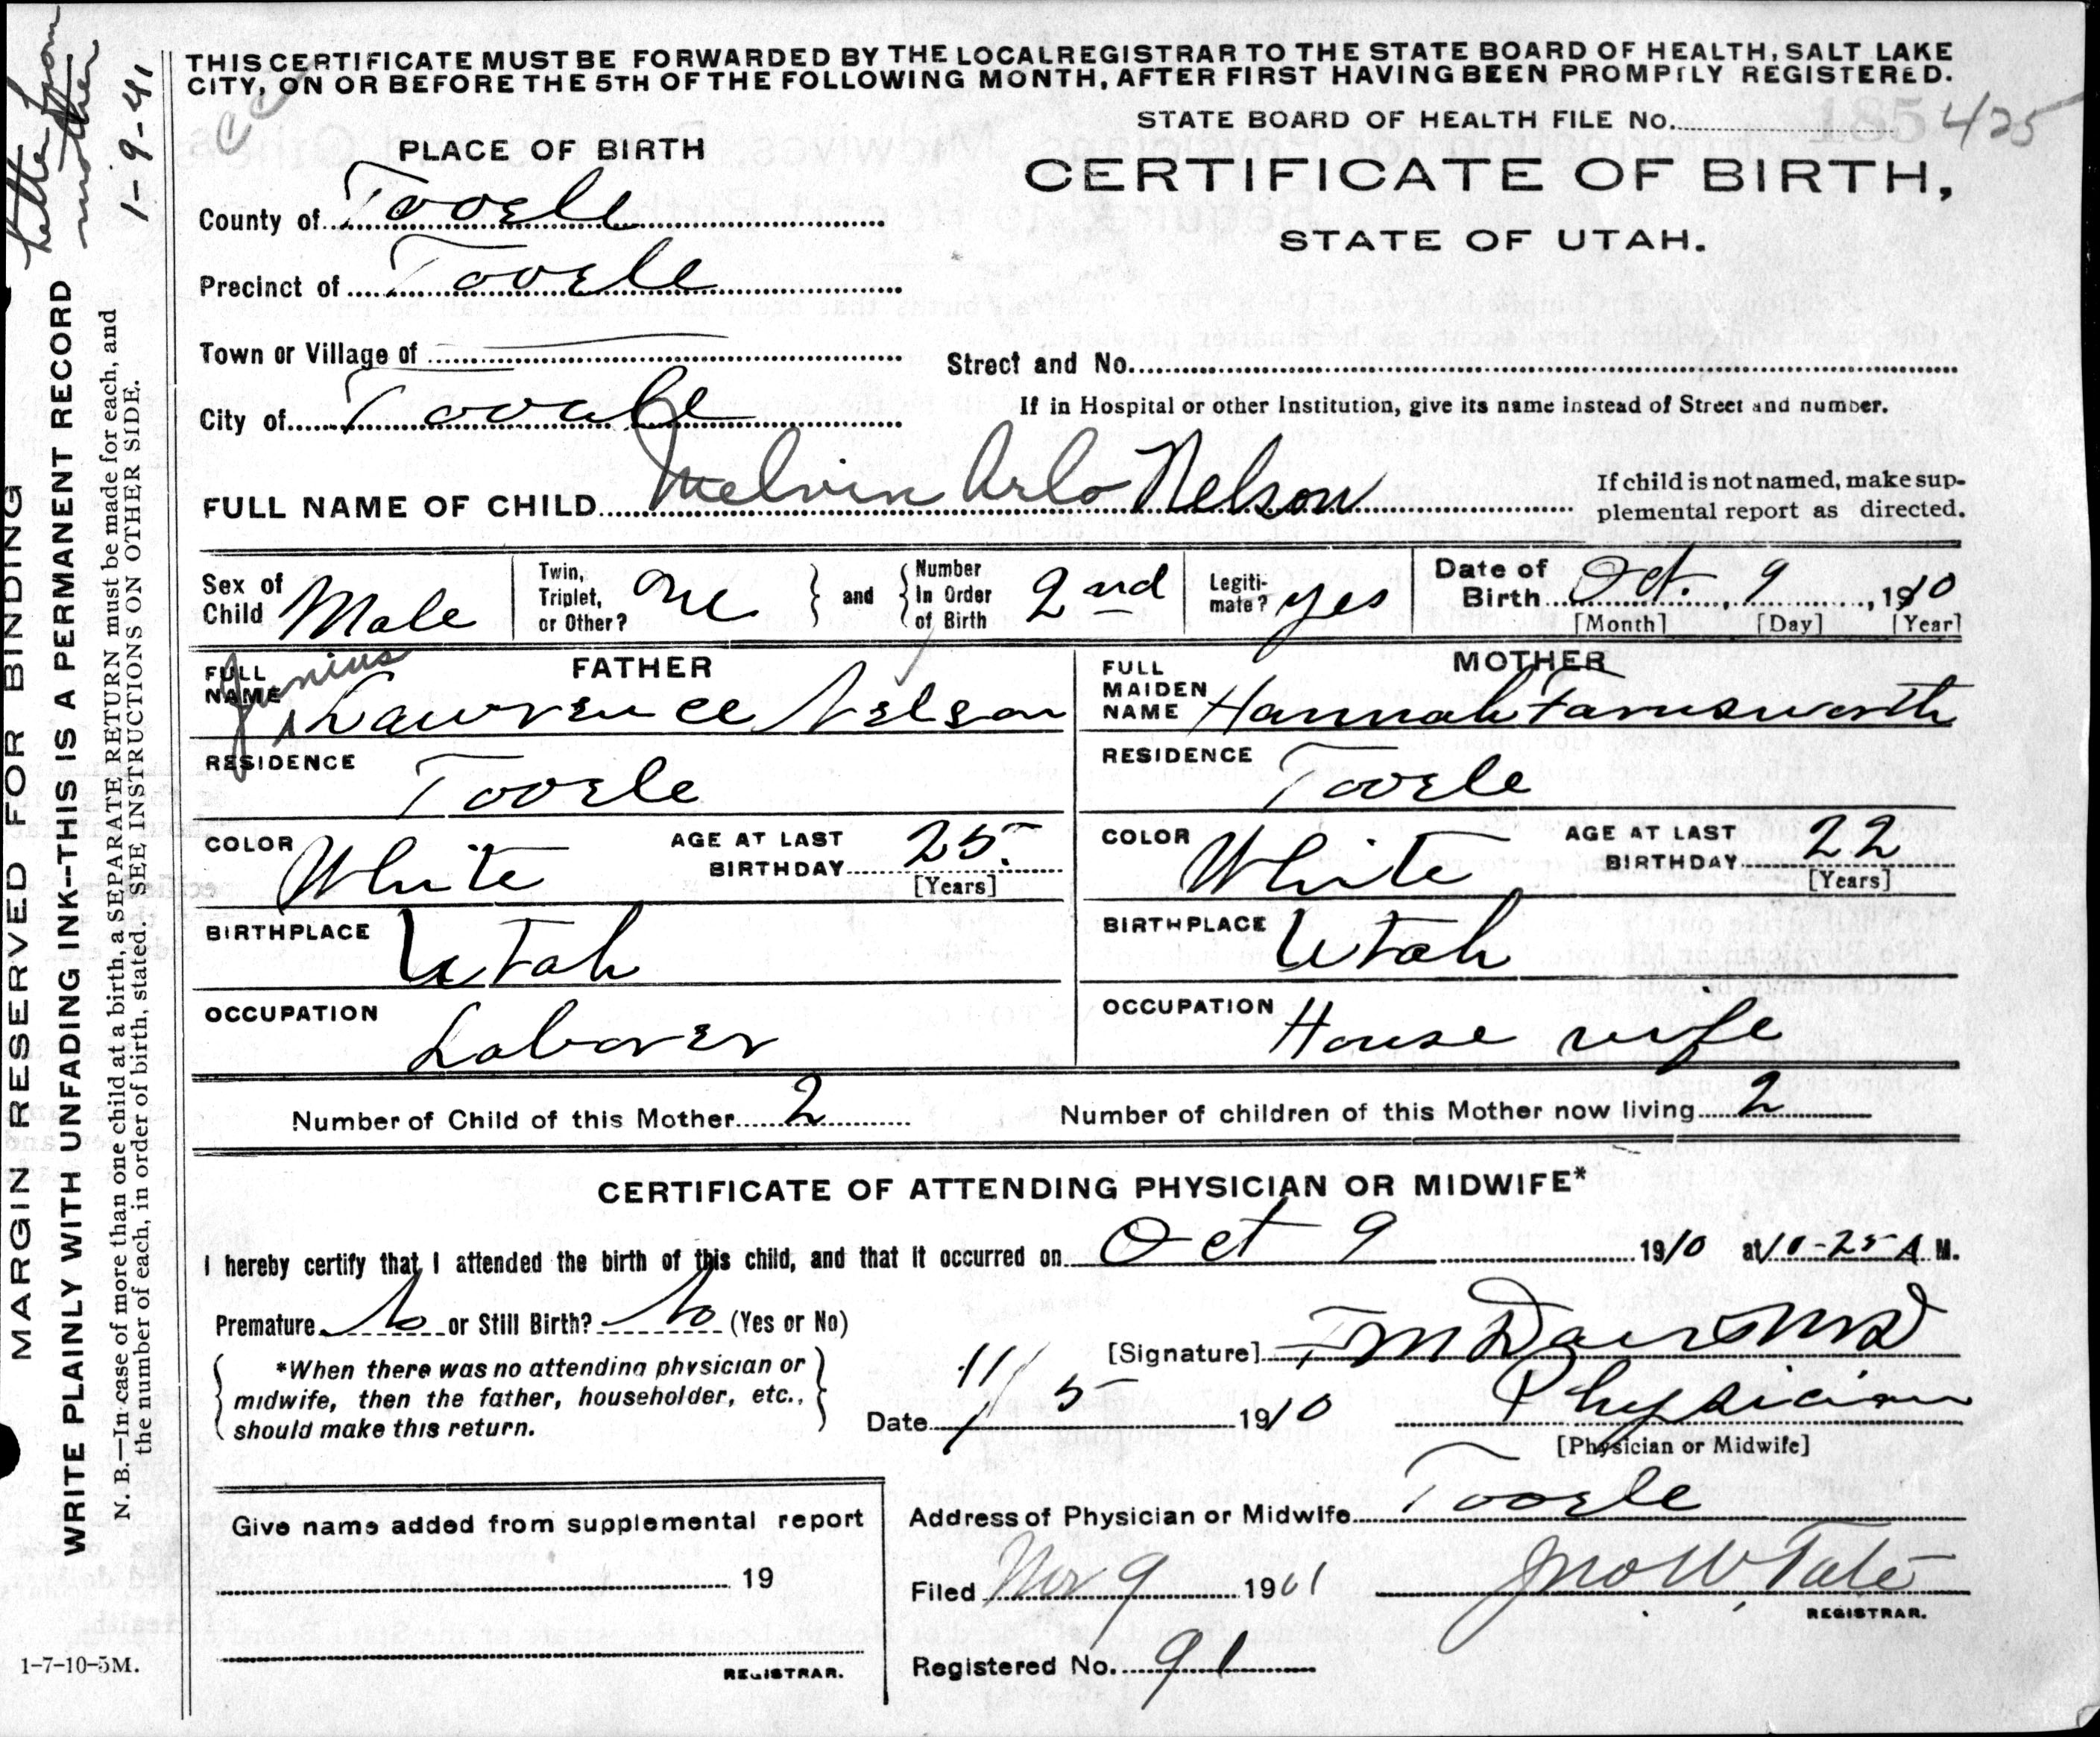 THIS CERTIFICATE MUST BE FORWARDED BY THE LOCAL REGISTRAR TO THE STATE BOARD OF HEALTH, SALT LAKE
CITY, ON OR BEFORE THE 5TH OF THE FOLLOWING MONTH, AFTER FIRST HAVING BEEN PROMPTLY REGISTERED.
STATE BOARD OF HEALTH FILE No. 185 425
CERTIFICATE OF BIRTH,
STATE OF UTAH.
PLACE OF BIRTH
County of Tooele
Precinct of Tooele
Town or Village of
Street and No.
City of Tooele
If in Hospital or other Institution, give its name instead of Street and number.
FULL NAME OF CHILD Melvin Arlo Nelson
If child is not named, make sup-
plemental report as directed.
Sex of Child Male
Twin, Triplet, or Other? One } and { Number In Order of Birth 2nd
Legiti-mate? yes
Date of Birth Oct. 9, 1910
[Month] [Day] [Year]
FATHER
FULL NAME Junius Lawrence Nelson
RESIDENCE Tooele
COLOR White AGE AT LAST BIRTHDAY 25 [Years]
BIRTHPLACE Utah
OCCUPATION Laborer
MOTHER
FULL MAIDEN NAME Hannah Farnsworth
RESIDENCE Tooele
COLOR White AGE AT LAST BIRTHDAY 22 [Years]
BIRTHPLACE Utah
OCCUPATION House wife
Number of Child of this Mother 2 Number of children of this Mother now living 2
CERTIFICATE OF ATTENDING PHYSICIAN OR MIDWIFE*
I hereby certify that I attended the birth of this child, and that it occurred on Oct 9 1910 at 10-25 A M.
Premature No or Still Birth? No (Yes or No)
*When there was no attending physician or
midwife, then the father, householder, etc.,
should make this return.
[Signature] M D
Date 11/5 1910 Physician
[Physician or Midwife]
Address of Physician or Midwife Tooele
Filed Nov 9 1901 Jno W Tate
REGISTRAR.
Registered No. 91
Give name added from supplemental report
19
REGISTRAR.
1-7-10-5M.
MARGIN RESERVED FOR BINDING
WRITE PLAINLY WITH UNFADING INK--THIS IS A PERMANENT RECORD
N. B.—In case of more than one child at a birth, a SEPARATE RETURN must be made for each, and
the number of each, in order of birth, stated. SEE INSTRUCTIONS ON OTHER SIDE.
letter from
mother
1-9-41